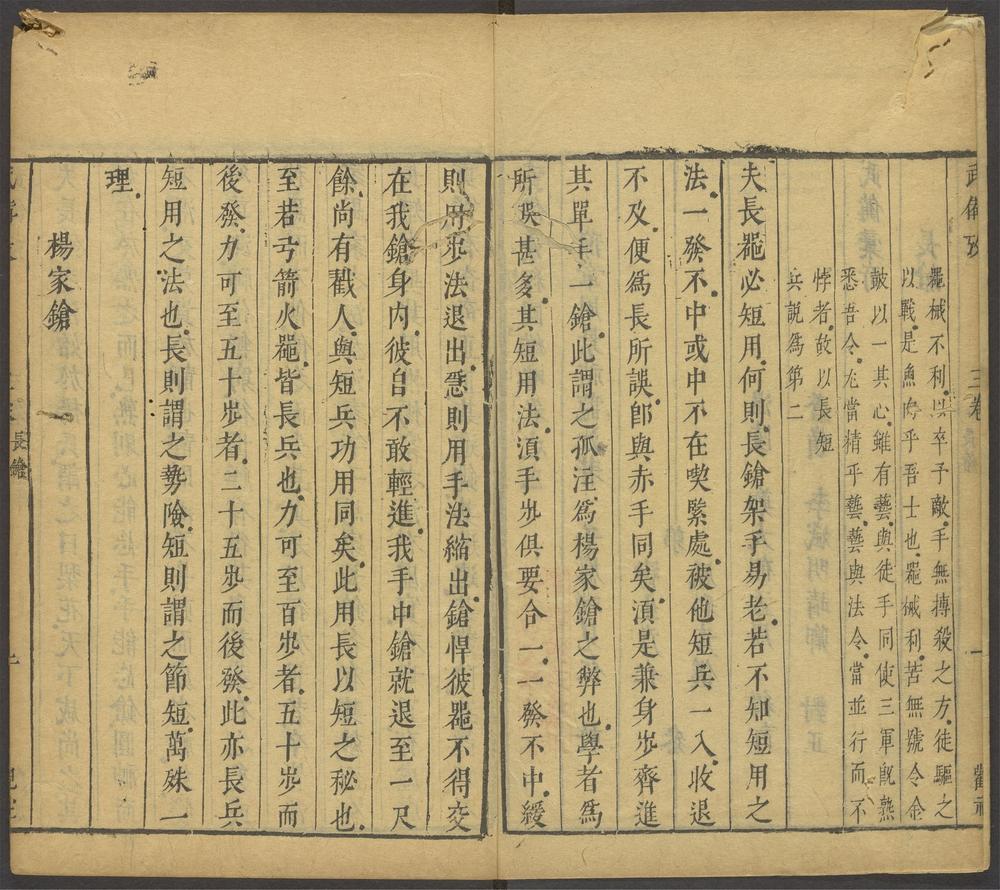 武備攷 三卷 一
器械不利以卒予敵手無搏殺之方徒驅之
以戰是魚肉乎吾士也器械利苦無號令金
鼓以一其心雖有藝與徒手同使三軍旣熟
悉吾令尤當精乎藝藝與法令當並行而不
悖者故以長短
兵説為第二
夫長器必短用何則長鎗架手易老若不知短用之
法一發不中或中不在喫緊處被他短兵一入收退
不及便為長所誤卽與赤手同矣須是兼身步齊進
其單手一鎗此謂之孤注為楊家鎗之弊也學者為
所誤甚多其短用法須手步俱要合一一發不中緩
則用步法退出急則用手法縮出鎗悍彼器不得交
在我鎗身内彼自不敢輕進我手中鎗就退至一尺
餘尚有戳人與短兵功用同矣此用長以短之秘也
至若弓箭火器皆長兵也力可至百步者五十步而
後發力可至五十步者二十五步而後發此亦長兵
短用之法也長則謂之勢險短則謂之節短萬殊一
理
楊家鎗
長鎗